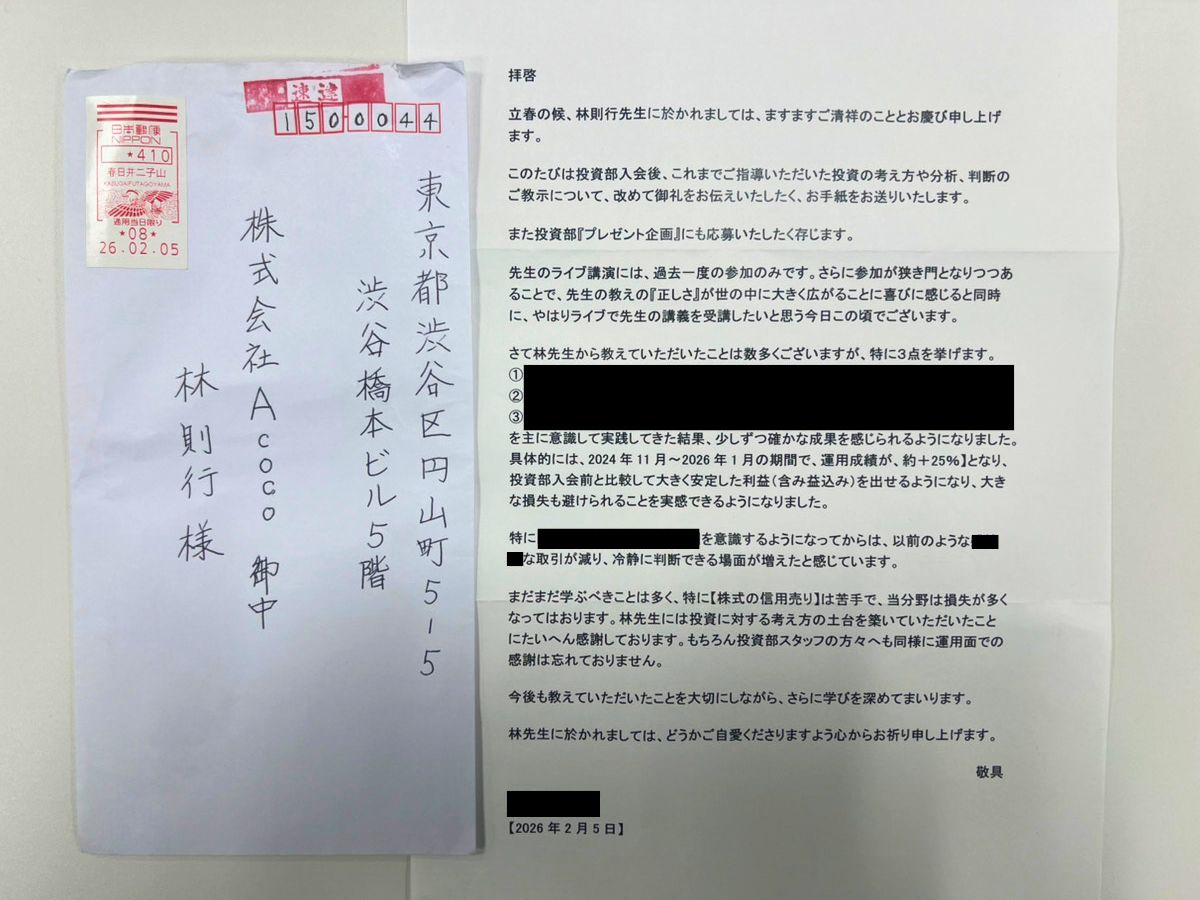 速達
1500044
日本郵便
NIPPON
★410
春日井二子山
KASUGAIFUTAGOYAMA
適用当日限り
★08★
26.02.05
東京都渋谷区円山町5-5
渋谷橋本ビル5階
株式会社Acoco 御中
林則行様
拝啓
立春の候、林則行先生に於かれましては、ますますご清祥のこととお慶び申し上げ
ます。
このたびは投資部入会後、これまでご指導いただいた投資の考え方や分析、判断の
ご教示について、改めて御礼をお伝えいたしたく、お手紙をお送りいたします。
また投資部『プレゼント企画』にも応募いたしたく存じます。
先生のライブ講演には、過去一度の参加のみです。さらに参加が狭き門となりつつあ
ることで、先生の教えの『正しさ』が世の中に大きく広がることに喜びに感じると同時
に、やはりライブで先生の講義を受講したいと思う今日この頃でございます。
さて林先生から教えていただいたことは数多くございますが、特に3点を挙げます。
①
②
③
を主に意識して実践してきた結果、少しずつ確かな成果を感じられるようになりました。
具体的には、2024年11月～2026年1月の期間で、運用成績が、約＋25%】となり、
投資部入会前と比較して大きく安定した利益（含み益込み）を出せるようになり、大き
な損失も避けられることを実感できるようになりました。
特に を意識するようになってからは、以前のような
な取引が減り、冷静に判断できる場面が増えたと感じています。
まだまだ学ぶべきことは多く、特に【株式の信用売り】は苦手で、当分野は損失が多く
なってはおります。林先生には投資に対する考え方の土台を築いていただいたこと
にたいへん感謝しております。もちろん投資部スタッフの方々へも同様に運用面での
感謝は忘れておりません。
今後も教えていただいたことを大切にしながら、さらに学びを深めてまいります。
林先生に於かれましては、どうかご自愛くださりますよう心からお祈り申し上げます。
敬具
【2026年2月5日】